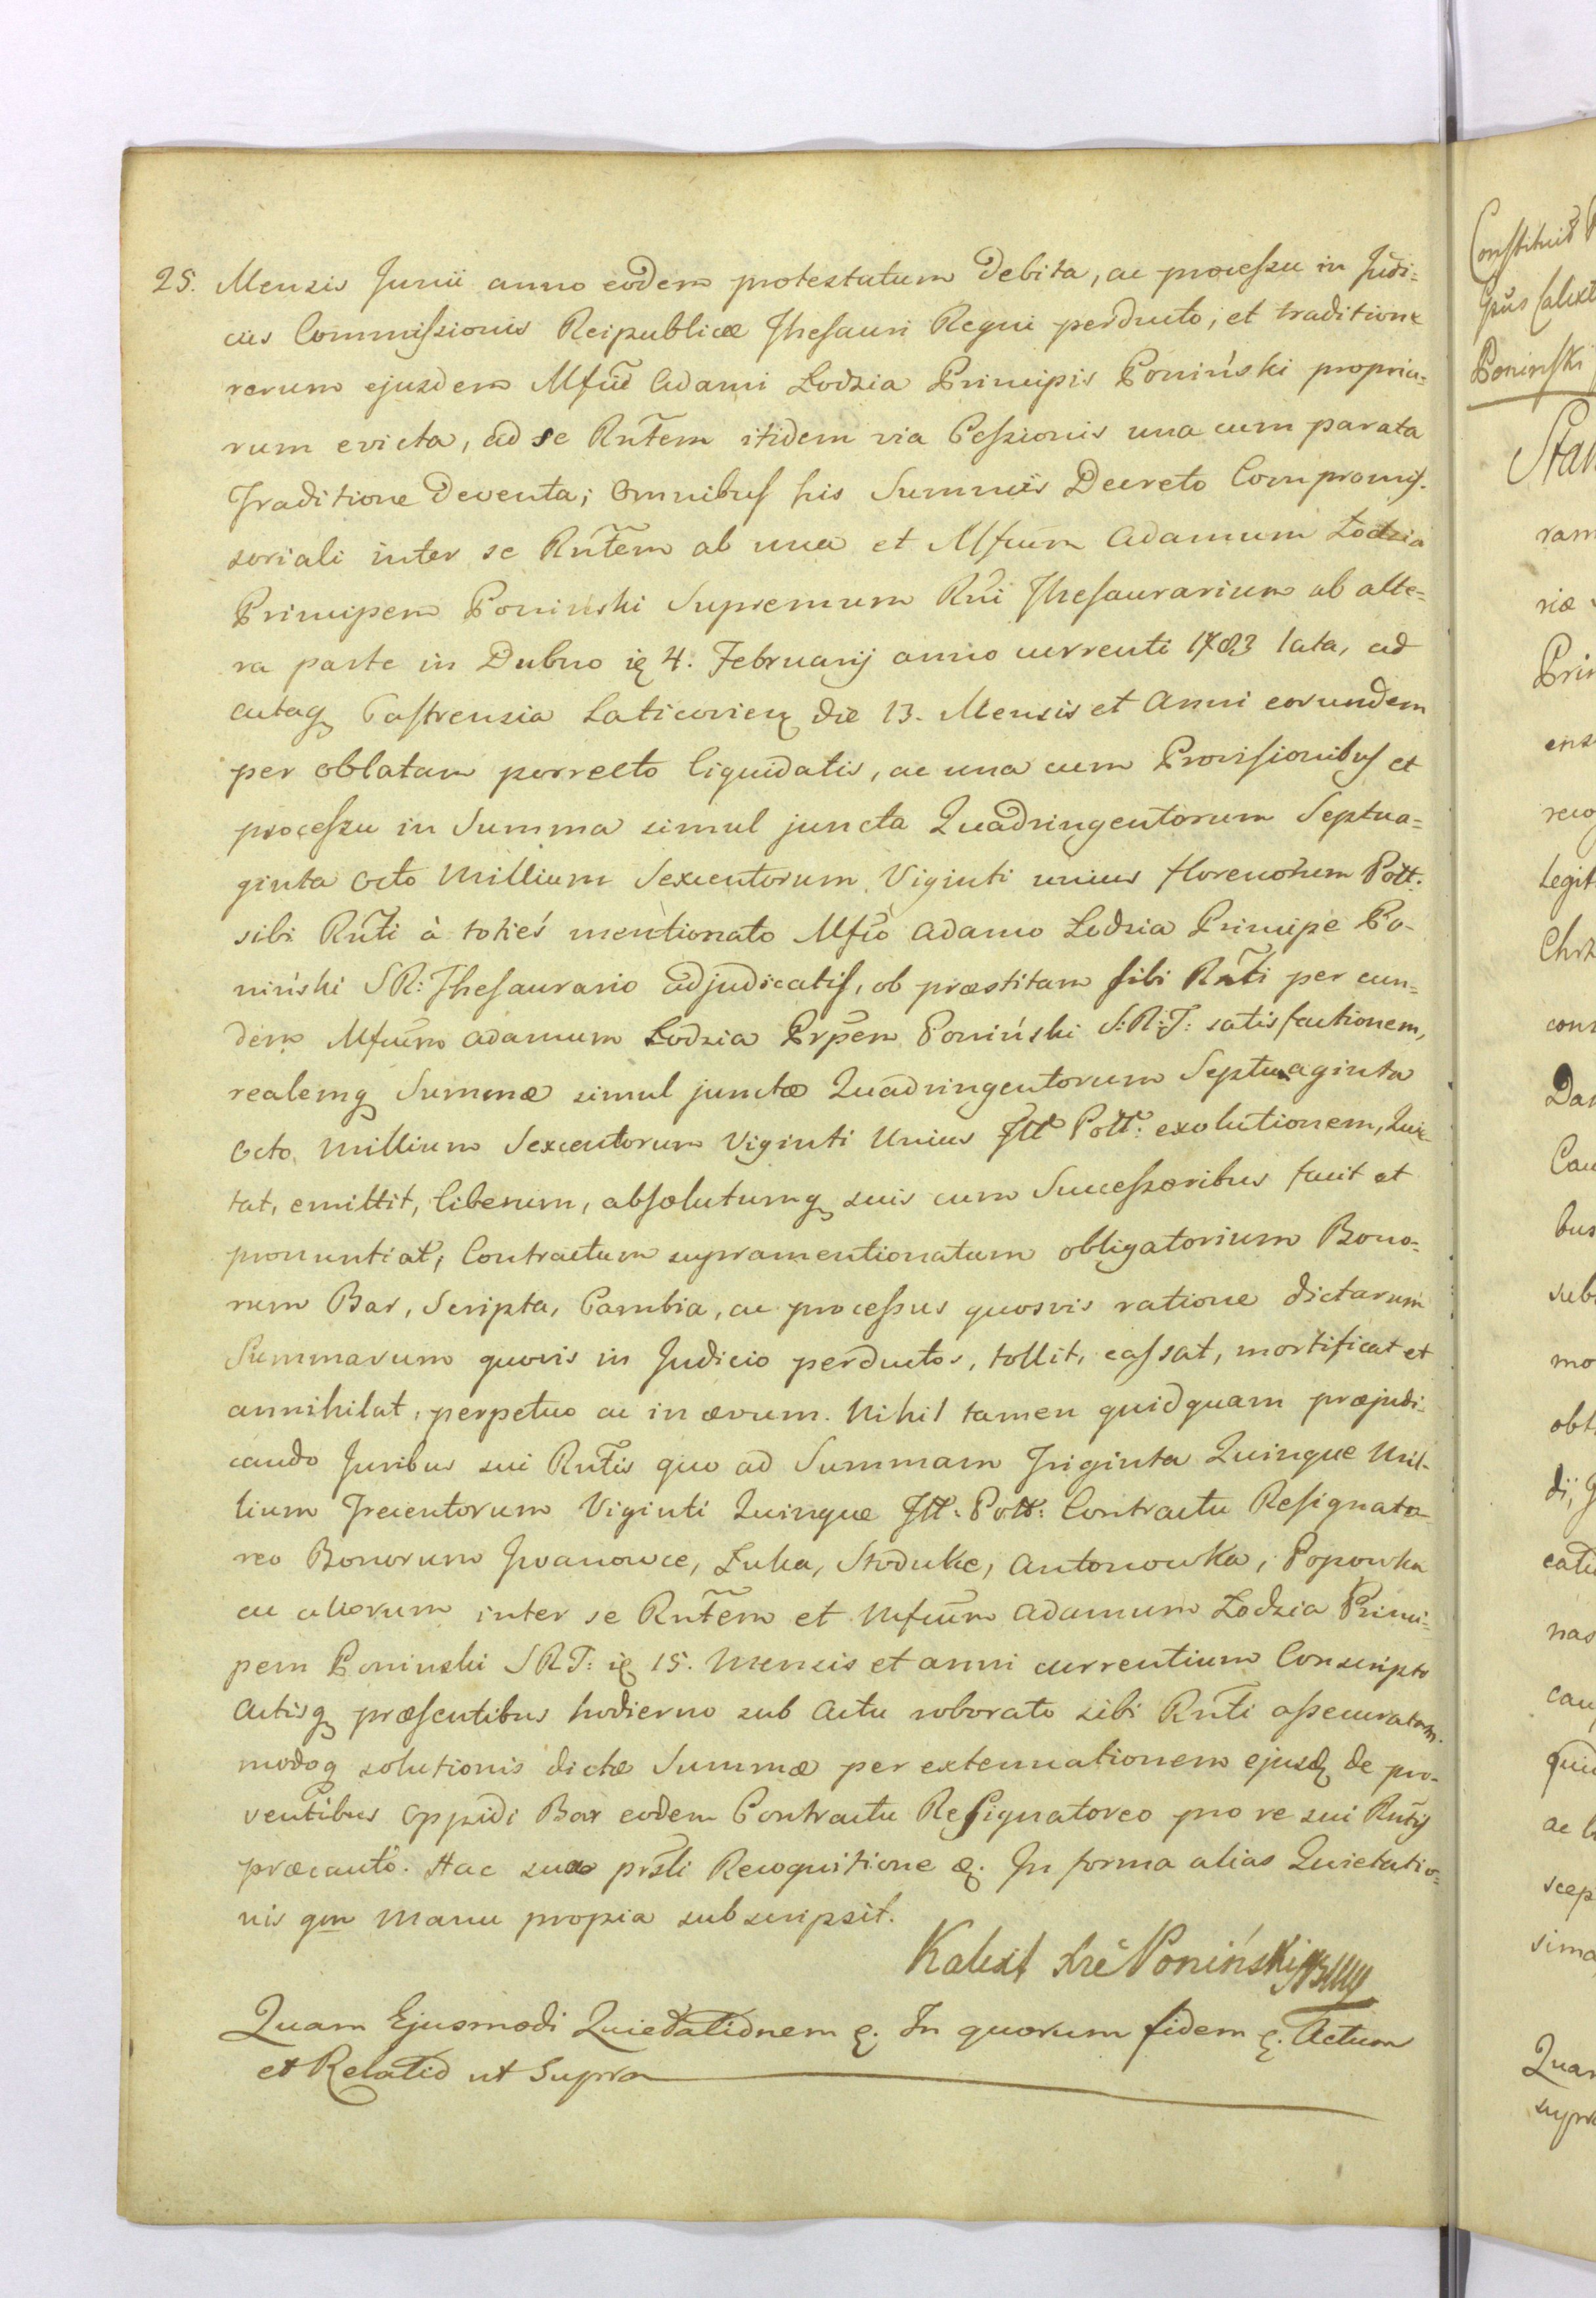 25. Mensis Junii anno eodem protestatum debita, ac processu in Judi=
ciis Commissionis Reipublicæ Thesauri Regni perducto, et traditione
rerum ejusdem Mfici Adami Lodzia Principis Poniński propria=
rum evicta, ad se Rntem itidem via Cessionis una cum parata
Traditione deventa; Omnibus his Summis Decreto Compromis.
soriali inter se Rntem ab una et Mfcum Adamum Lodzia
Principem Poniński Supremum Rni Thesaurarium ab alte=
ra parte in Dubno 4. Februarij anno currenti 1783 lata, ad
actaq Castrensia Laticovien die 13. Mensis et Anni eorundem
per oblatam porrecto liquidatis, ac una cum Provisionibus et
processu in Summa simul juncta Quadringentorum Septua=
ginta Octo Millium Sexcentorum Viginti unius florenorum Poll.
sibi Rnti à toties mentionato Mfco Adamo Lodzia Principe Po-
niński SR: Thesaurario adjudicatis, ob præstitam sibi Rnti per eun=
dem Mfcum Adamum Lodzia Prpem Poniński S:R:T: satisfactionem,
realemq Summæ simul junctæ Quadringentorum Septuaginta
Octo Millium Sexcentorum Viginti Unius Fll Poll: exolutionem, Quie-
tat, emittit, liberum, absolutumq suis cum Successoribus facit et
pronuntiat; Contractum supramentionatum obligatorium Bono=
rum Bar, Scripta, Cambia, ac processus quosvis ratione dictarum
Summarum quovis in Judicio perductos, tollit, cassat, mortificat et
annihilat, perpetuo ac in ævum. Nihil tamen quidquam præjudi-
cando Juribus sui Rntis quo ad Summam Triginta Quinque Mil-
lium Trecentorum Viginti Quinque Fll. Poll: Contractu Resignato-
reo Bonorum Iwanowce, Luka, Stodulce, Antonowka, Popowka
ac aliorum inter se Rntem et Mfcum Adamum Lodzia Princi=
pem Poniński SRT: 15. Mensis et anni currentium Conscripto
Actisq præsentibus hodierno sub Actu roborato sibi Rnti assecuratam.
modoq solutionis dictæ Summæ per extenuationem ejusd de pro-
ventibus Oppidi Bar eodem Contractu Resignatoreo pro re sui Rntis
præcauto. Hac sua prsti Recognitione &. In forma alias Quietatio=
nis qm manu propia subscripsit.
Kalixt Xże Poniński
Quam Ejusmodi Quietationem &. In quorum fidem &. Actum
et Relatio ut Supra